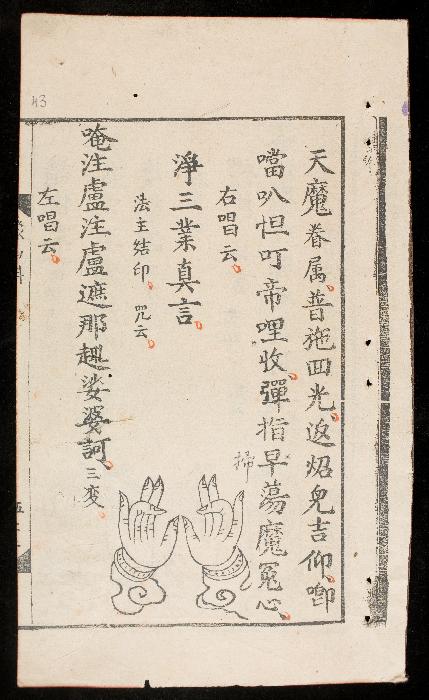 天魔眷属普施回光返炤皃吉仰啣
噹叭怛叮帝哩收彈指早蕩魔冤心
掃
右唱云
淨三業真言
法主結印 咒云
唵注盧注盧遮那𧼮娑婆訶三变
左唱云
43